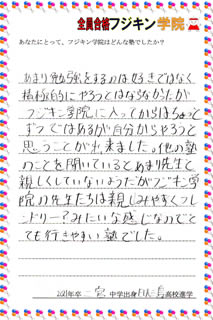 全員合格フジキン学院
あなたにとって、フジキン学院はどんな塾でしたか?
あまり勉強をするのは好きではなく
積極的にやろうとはならなかったが
フジキン学院に入ってからはちょっと
ずつではあるが自分からやろうと
思うことが出来ました。他の塾
のことを聞いているとあまり先生と
親しくしていないようだがフジキン学
院の先生たちは親しみやすくフレ
ンドリー?みたいな感じなのでと
ても行きやすい塾でした。
2021年卒 二宮 中学出身 高校進学